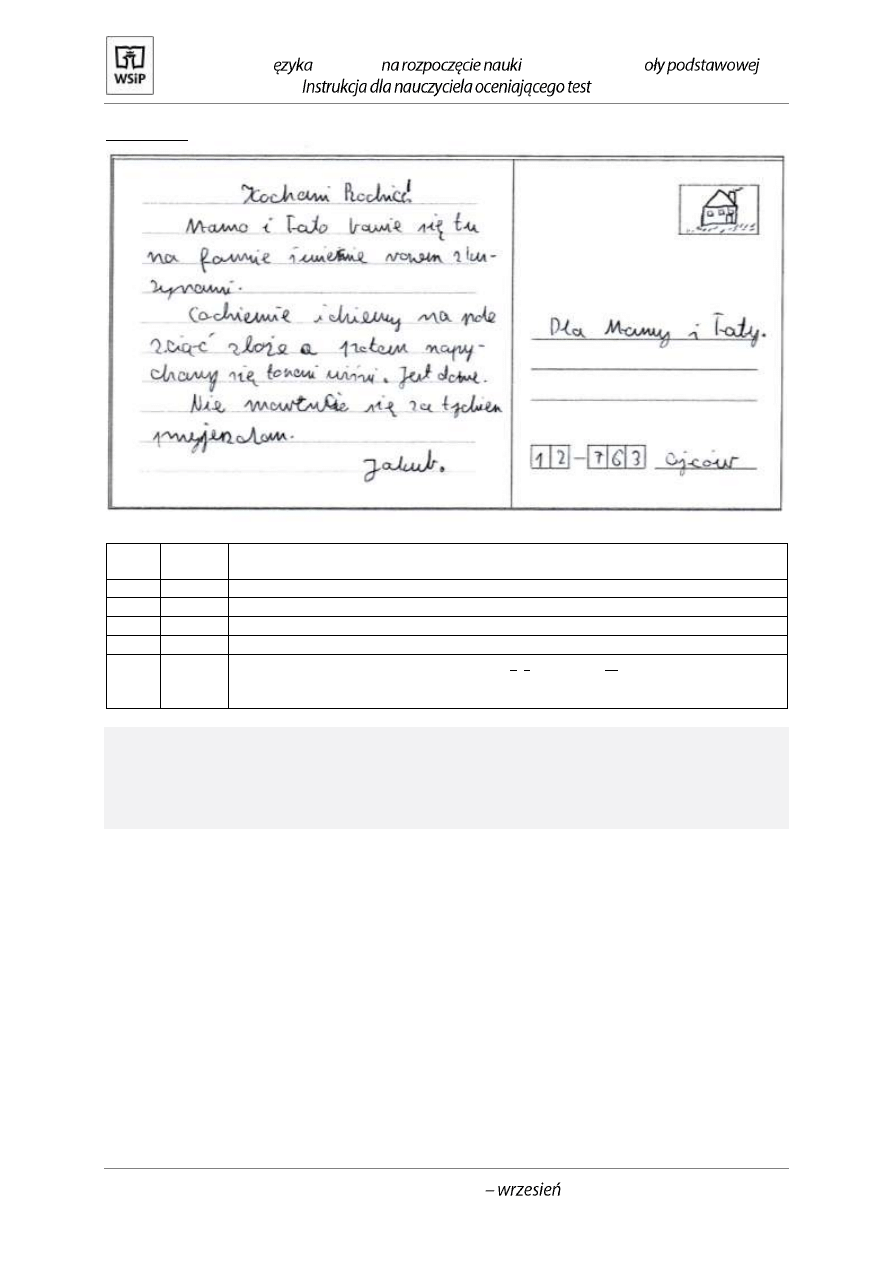 WSiP
ęzyka na rozpoczęcie nauki oły podstawowej
Instrukcja dla nauczyciela oceniającego test
Kochani Rodzice!
Mamo i Tato bawie się tu
na farmie świetnie z ku-
zynami.
Codziennie idziemy na pole
zciąć zboże a potem napy-
chamy się . Jest
Nie się za tydzien
Jakub.
Dla Mamy i Taty.
12-763 Ojców
– wrzesień